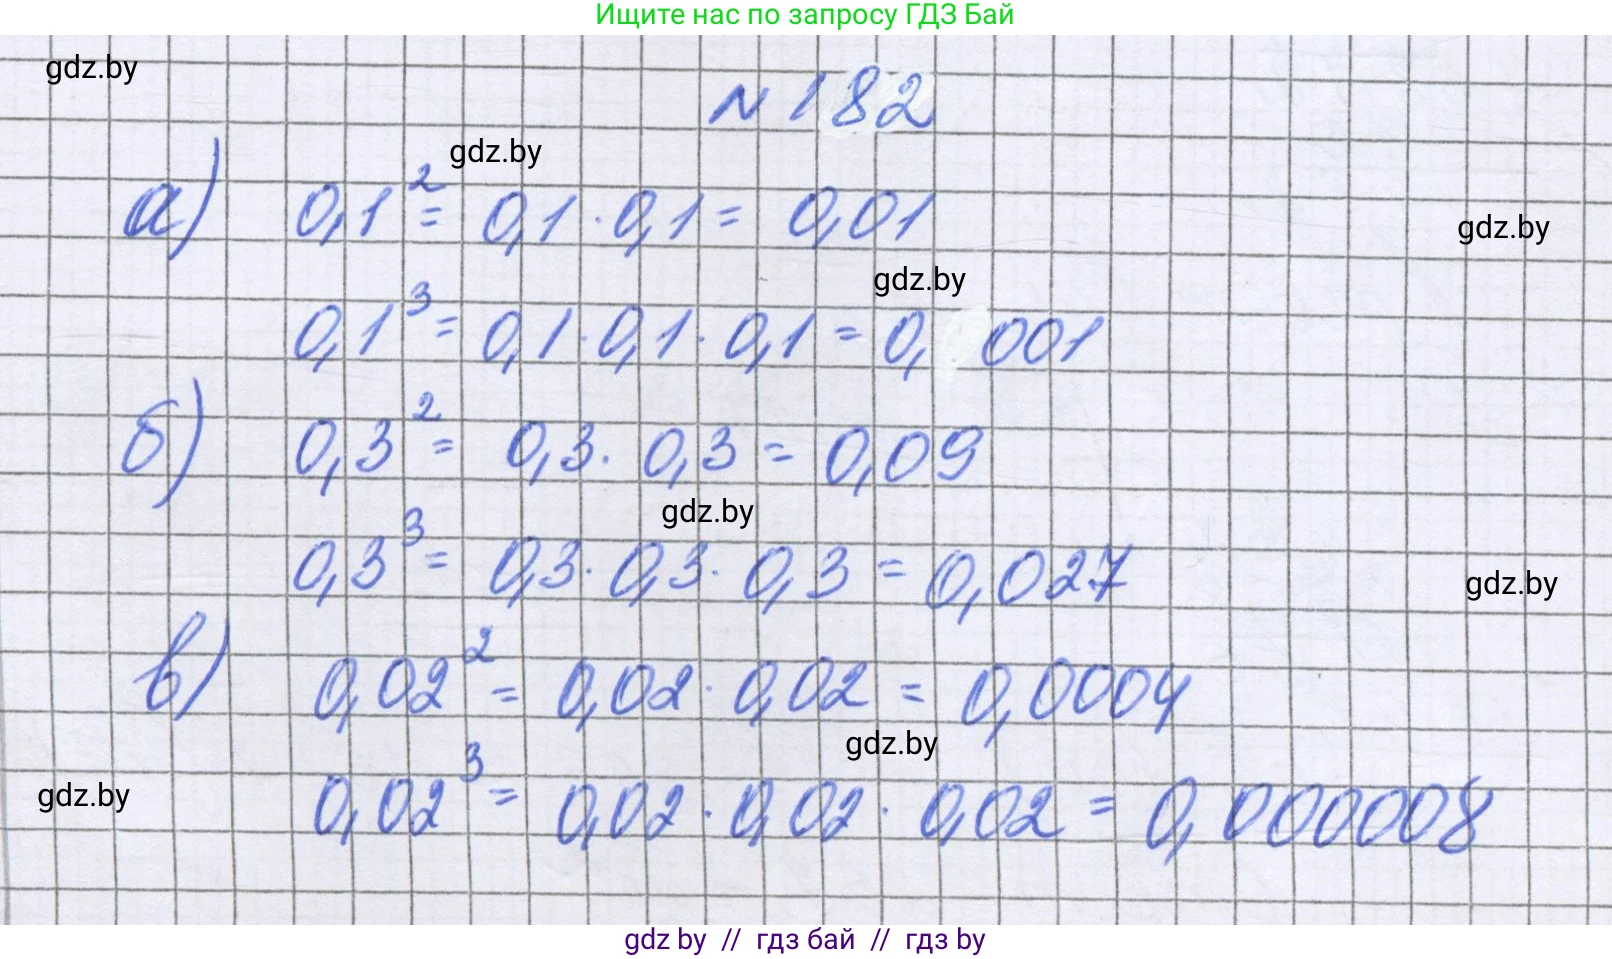 Ищите нас по запросу ГДЗ Бай
gdz.by
N 182
gdz.by
а) 0,1² = 0,1 · 0,1 = 0,01
gdz.by
gdz.by
0,1³ = 0,1 · 0,1 · 0,1 = 0,001
б) 0,3² = 0,3 · 0,3 = 0,09
gdz.by
0,3³ = 0,3 · 0,3 · 0,3 = 0,027
gdz.by
в) 0,02² = 0,02 · 0,02 = 0,0004
gdz.by
gdz.by
0,02³ = 0,02 · 0,02 · 0,02 = 0,000008
gdz by // гдз бай // гдз by